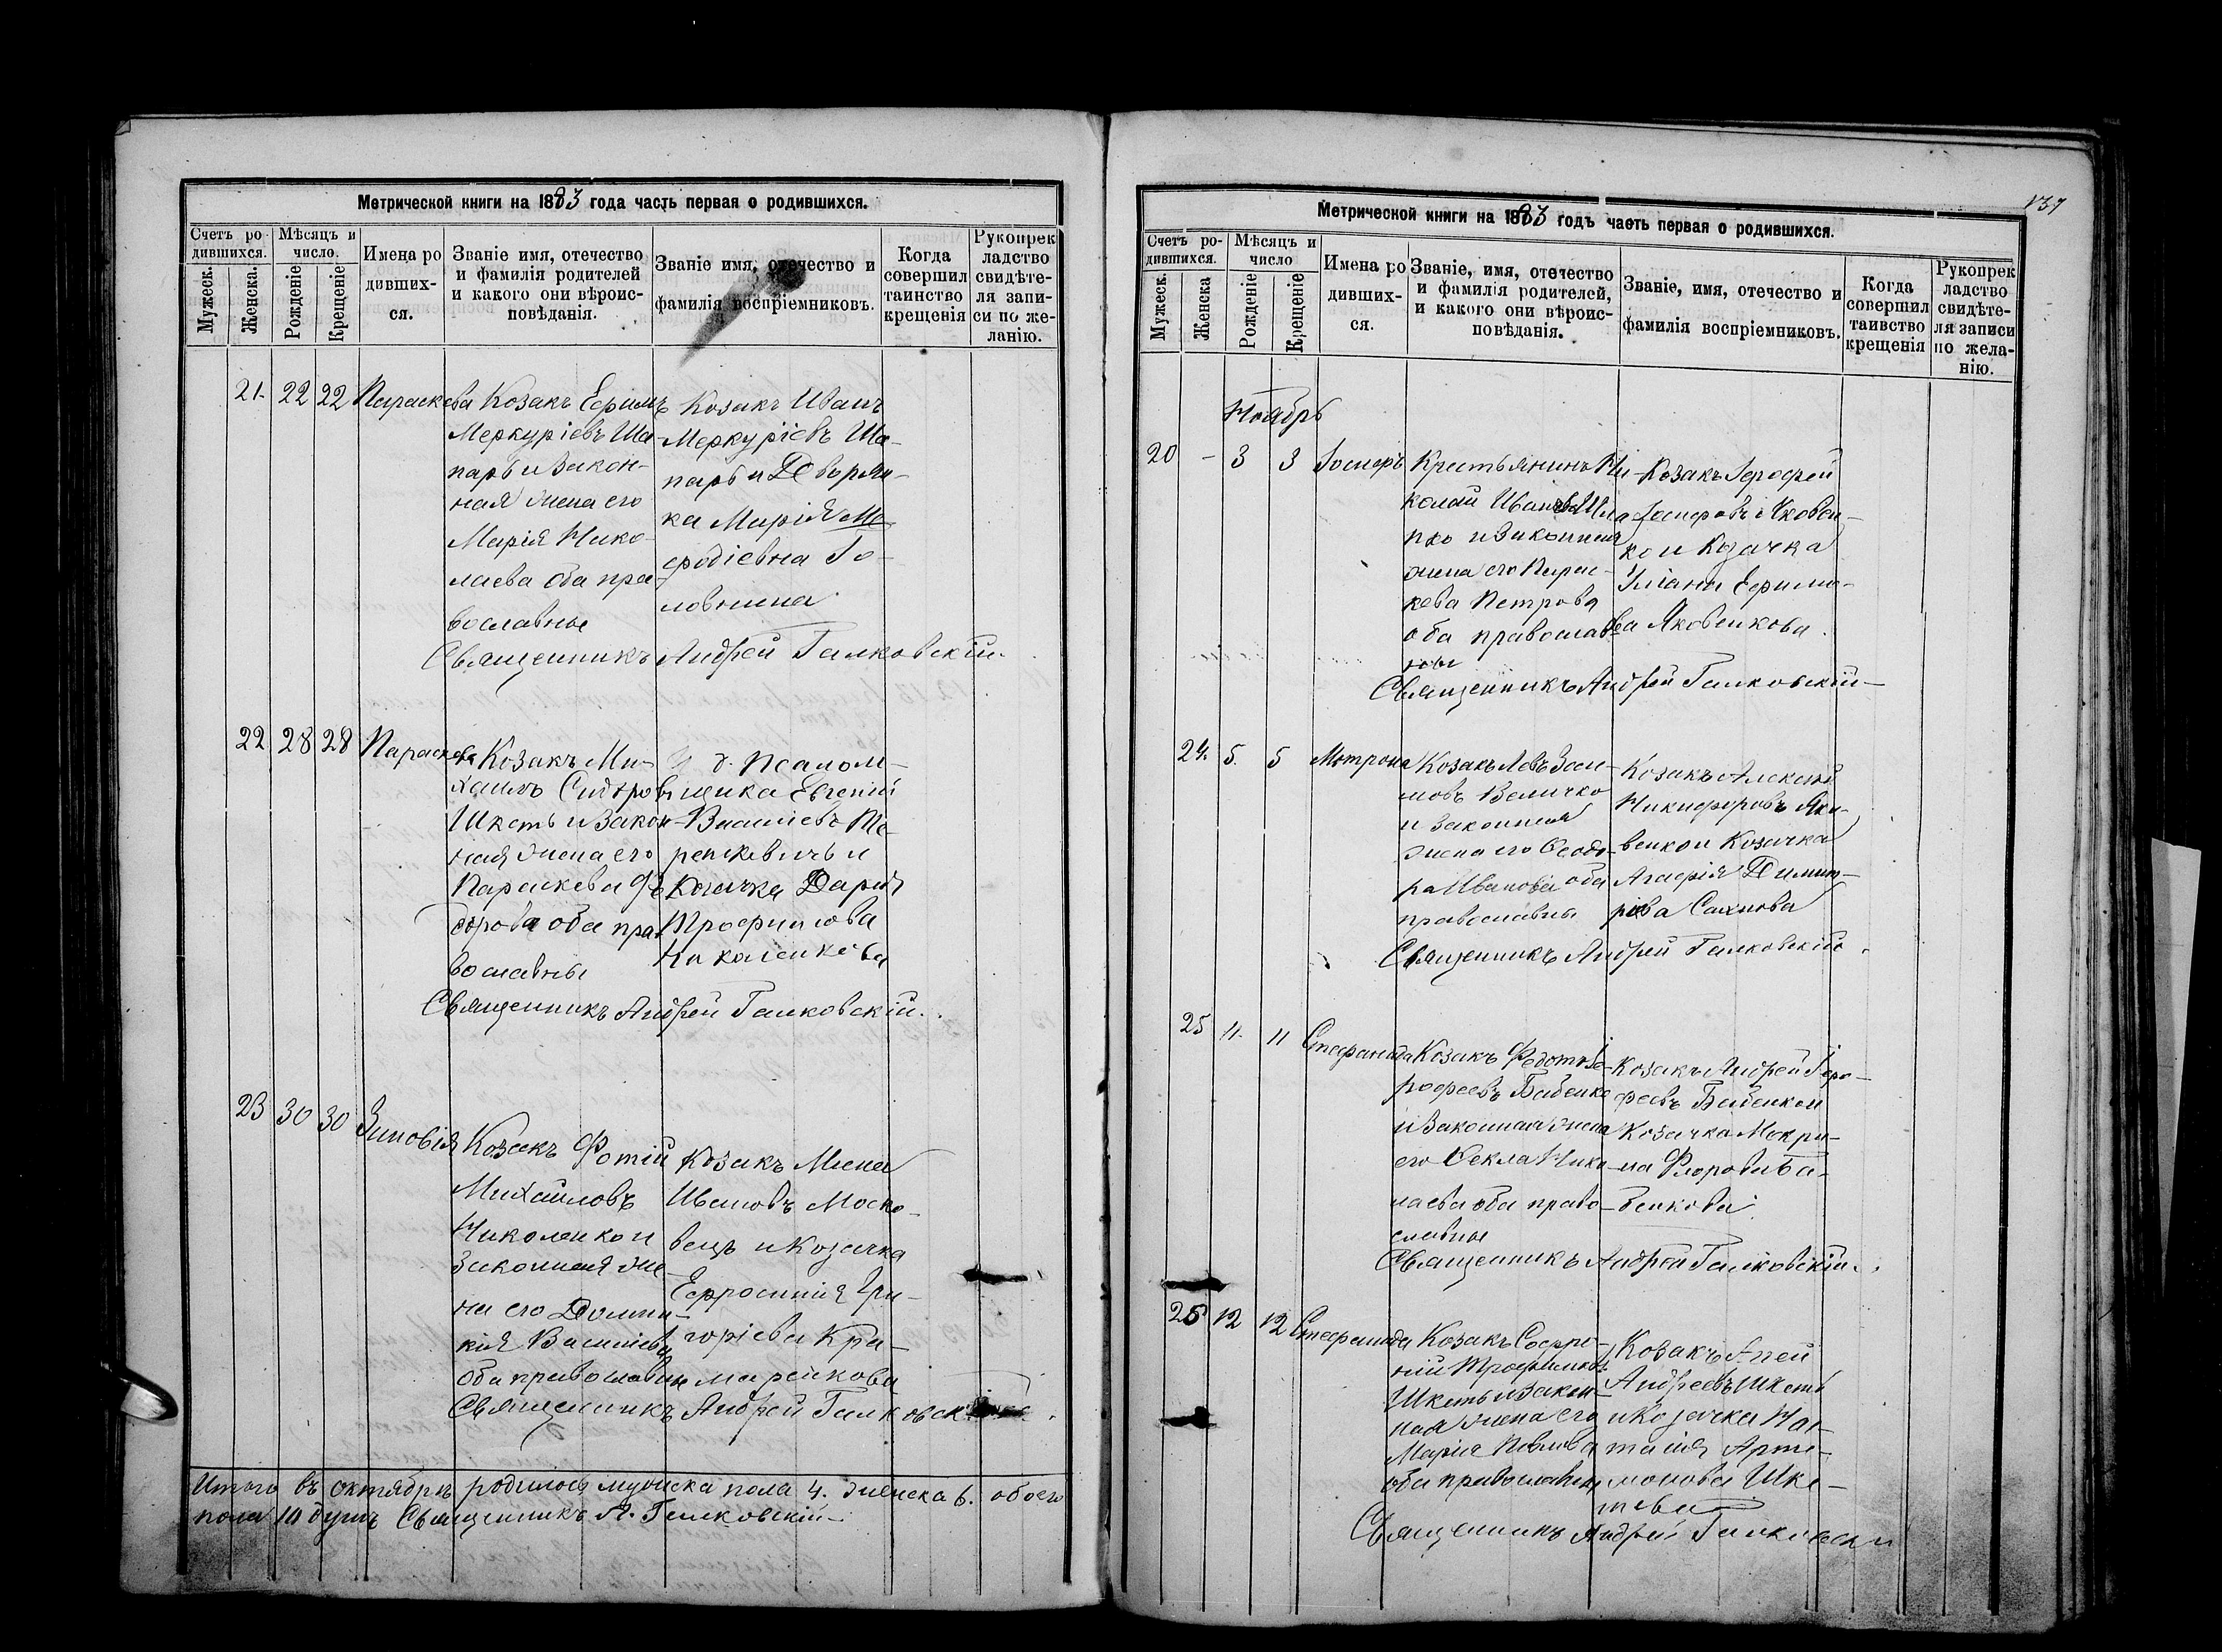 Метрической книги на 1883 года часть первая о родившихся.
Счетъ ро-
дившихся.
Мужеск.
Женска.
Мѣсяцъ и
число.
Рожденіе
Крещеніе
Имена ро
дивших-
ся.
Званіе имя, отечество
и фамилія родителей
и какого они вѣроис-
повѣданія.
Званіе имя, отечество и
фамилія воспріемниковъ.
Когда
совершил
таинство
крещенія
Рукопрек
ладство
свидѣте-
ля запи-
си по же-
ланію.
21. 22 22 Параскева
Козакъ Ефимъ
Меркуріевъ Ша-
паръ и закон-
ная жена его
Марія Нико-
лаева оба пра-
вославные
Козакъ Иванъ
Меркуріевъ Ша-
паръ и Дворян-
ка Марія Ме-
фодіевна Го-
ловнина
Священникъ Андрей Галковскій.
22 28 28 Параскева
Козакъ Ми-
хаилъ Сидоровъ
Шкеть и закон-
ная жена его
Параскева Фе-
дорова оба пра-
вославны
И. д. Псалом-
щика Евгеній
Василіевъ
и
Козачка Дарія
Трофимова
Священникъ Андрей Галковскій.
23 30 30 Зиновія
Козакъ Фотій
Михайловъ
Николенко и
законная же-
на его Домни-
кія Василіева
оба православны
Козакъ Мина
Ивановъ Моско-
вецъ и Козачка
Ефросинія Гри-
горіева Кра-
маренкова
Священникъ Андрей Галковскій.
Итого въ октябрѣ родилось мужска пола 4. женска 6. обоего
пола 10 душъ Священникъ А. Галковскій
137
Метрической книги на 1883 годъ часть первая о родившихся.
Счетъ ро-
дившихся.
Мужеск.
Женска
Мѣсяцъ и
число
Рожденіе
Крещеніе
Имена ро
дивших-
ся.
Званіе, имя, отечество
и фамилія родителей,
и какого они вѣроис-
повѣданія.
Званіе, имя, отечество и
фамилія воспріемниковъ.
Когда
совершил
таинство
крещенія
Рукопрек
ладство
свидѣте-
ля записи
по жела-
нію.
Ноябрь
20 - 3 3 Іосифъ
Крестьянинъ Ни-
колай Ивановъ
и законная
жена его Парас-
кева Петрова
оба православ-
ны
Козакъ Іерофей
Іосифовъ Яковен-
ко и Козачка
Уліана Ефимо-
ва Яковенкова.
Священникъ Андрей Галковскій
24. 5. 5 Мотрона
Козакъ Левъ Зоси-
мовъ Величко
и законная
жена его Феодо-
ра Иванова оба
православны
Козакъ Алексѣй
Никифоровъ Яко-
венко и Козачка
Агафія Димит-
ріева Сахнова
Священникъ Андрей Галковскій.
25 11. 11 Стефанида
Козакъ Федотъ Іе-
рофеевъ Бабенко
и законная жена
его Фекла Нико-
лаева оба право-
славны
Козакъ Андрей Іеро-
феевъ Бабенко и
Козачка Мокри-
на Флорова Ба-
бенкова
Священникъ Андрей Галковскій.
26 12 12 Стефанида
Козакъ Софро-
ній Трофимовъ
Шкеть и закон-
ная жена его
Марія Павлова
оба православны
Козакъ Агей
Андреевъ Шкеть
и Козачка На-
талія Арте-
монова Шке-
тева
Священникъ Андрей Галковскій